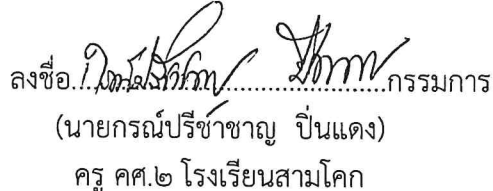 ลงชื่อ........................................กรรมการ
(นายกรณ์ปรีชาชาญ ปิ่นแดง)
ครู คศ.๒ โรงเรียนสามโคก